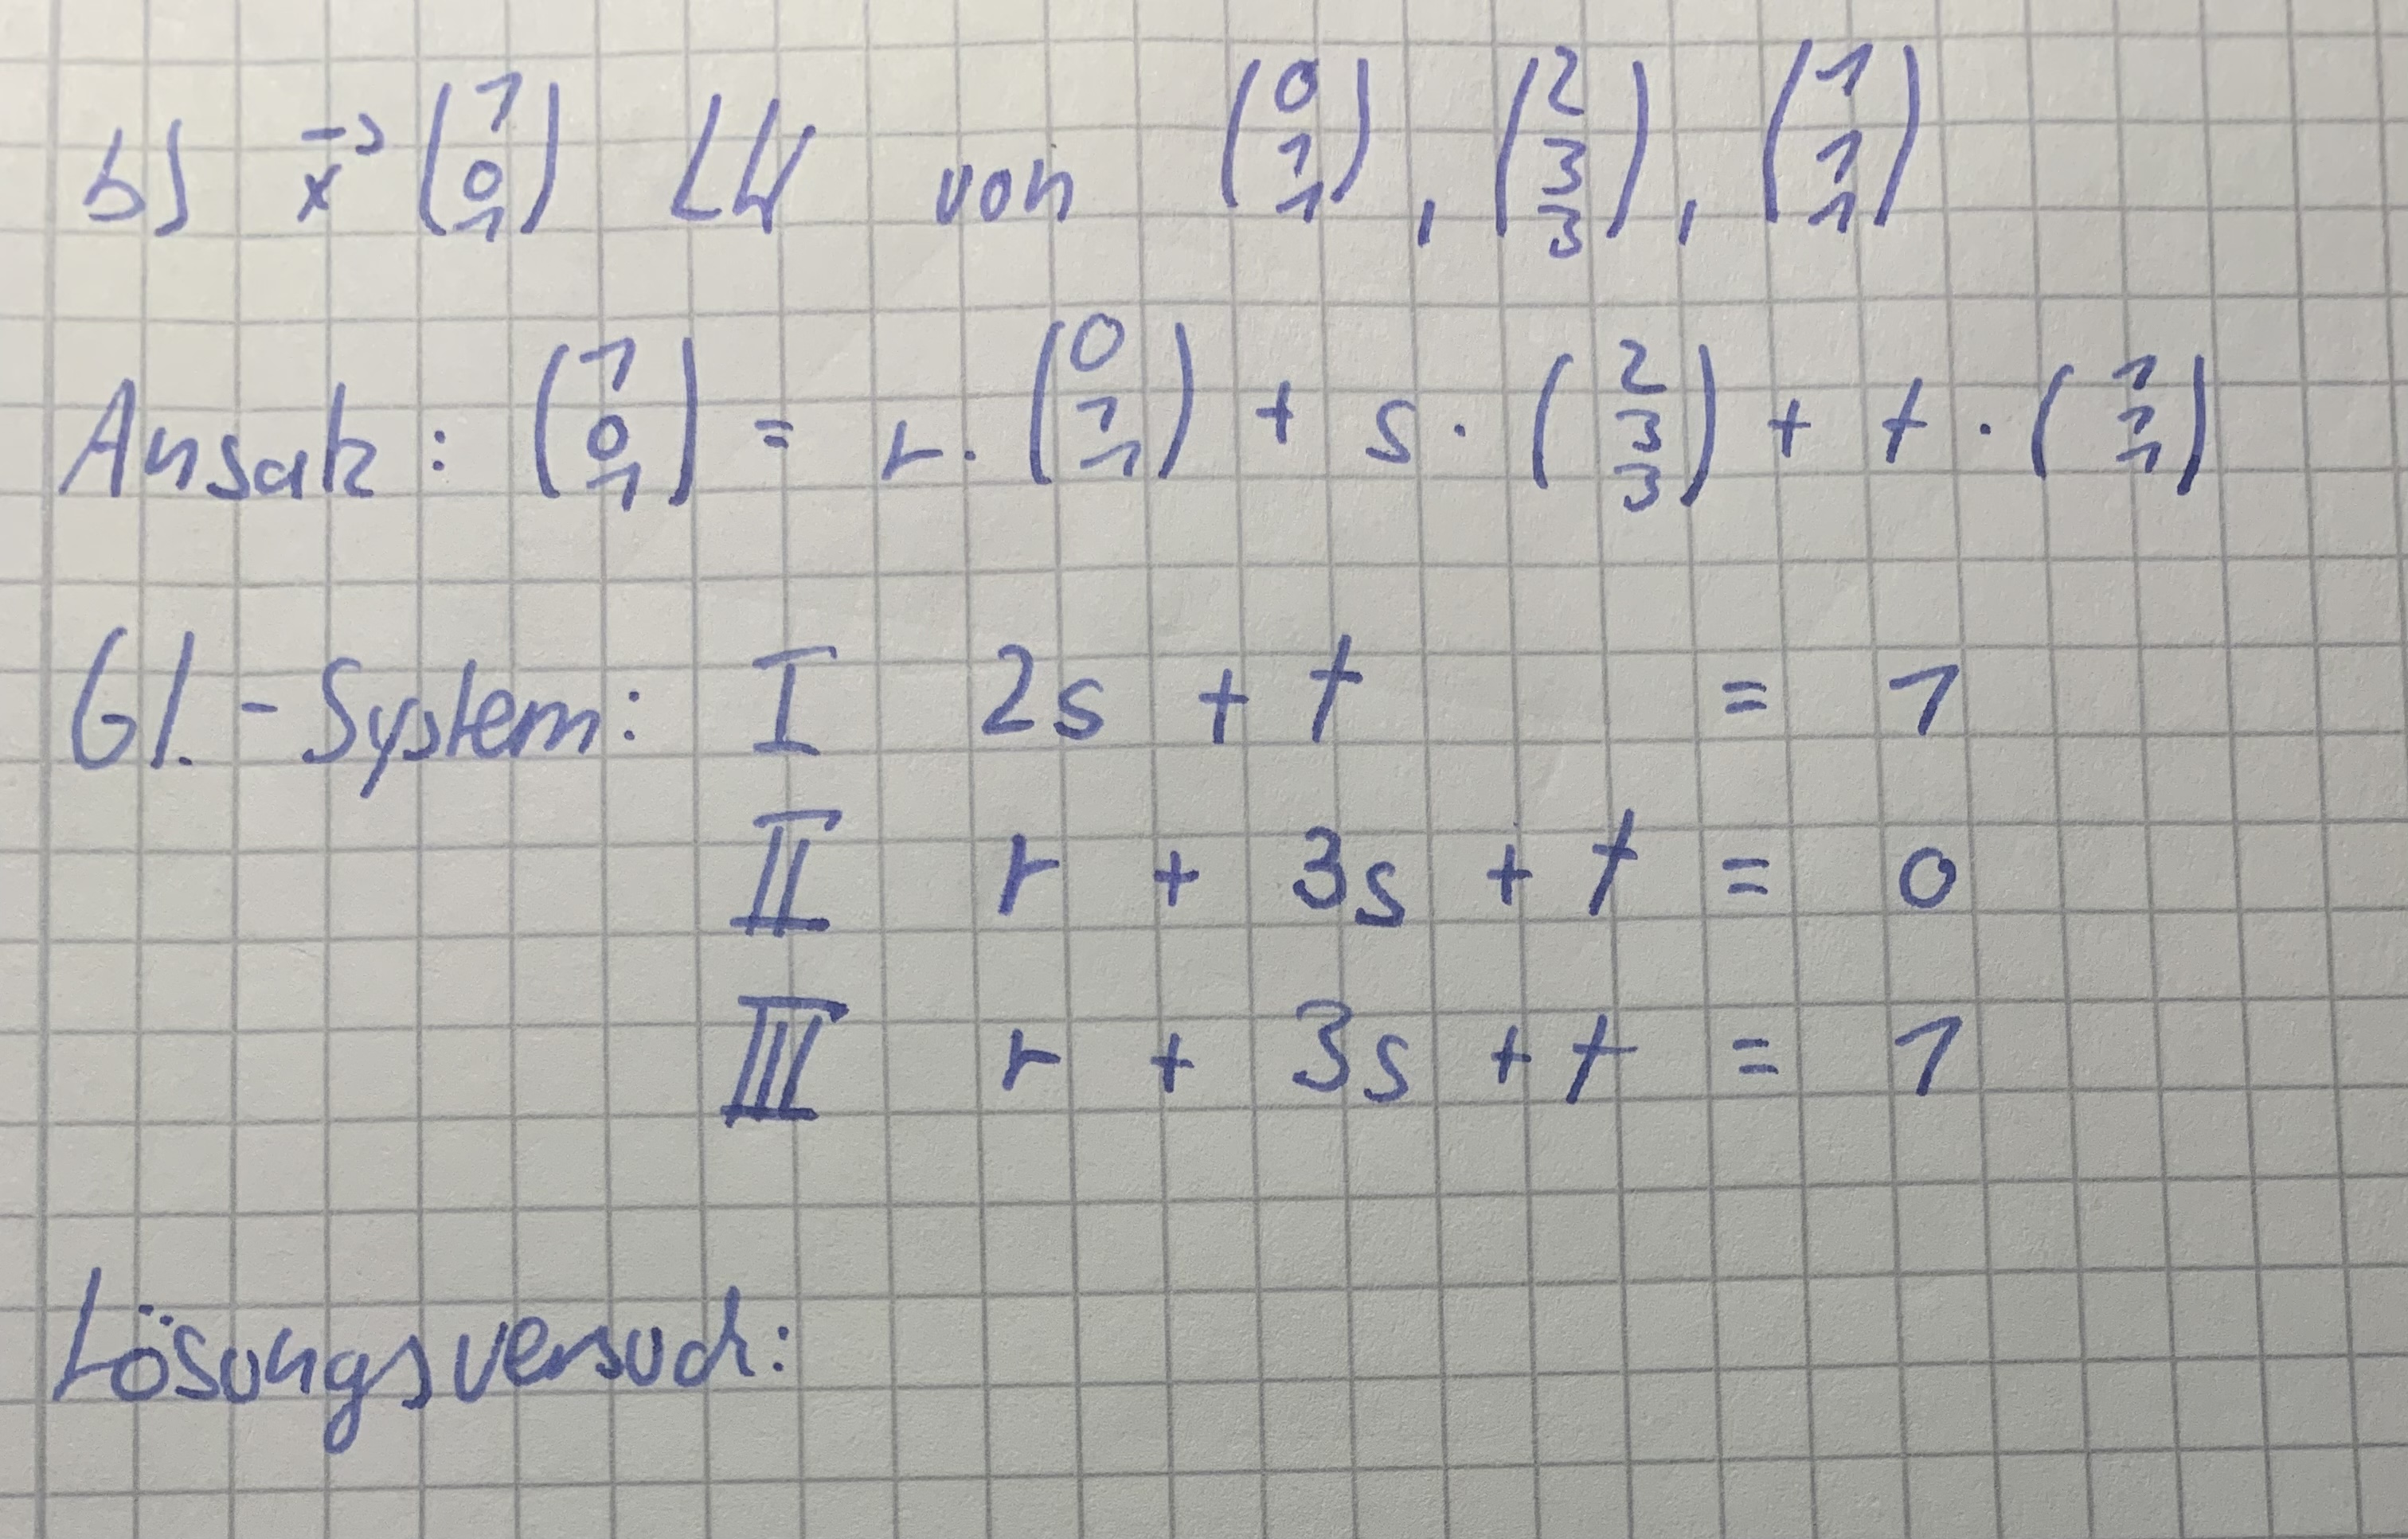 b) x⃗ (1 0 1) LK von (0 1 1), (2 3 3), (1 1 1)
Ansatz: (1 0 1) = r · (0 1 1) + s · (2 3 3) + t · (1 1 1)
Gl.-System: I 2s + t = 1
II r + 3s + t = 0
III r + 3s + t = 1
Lösungsversuch: